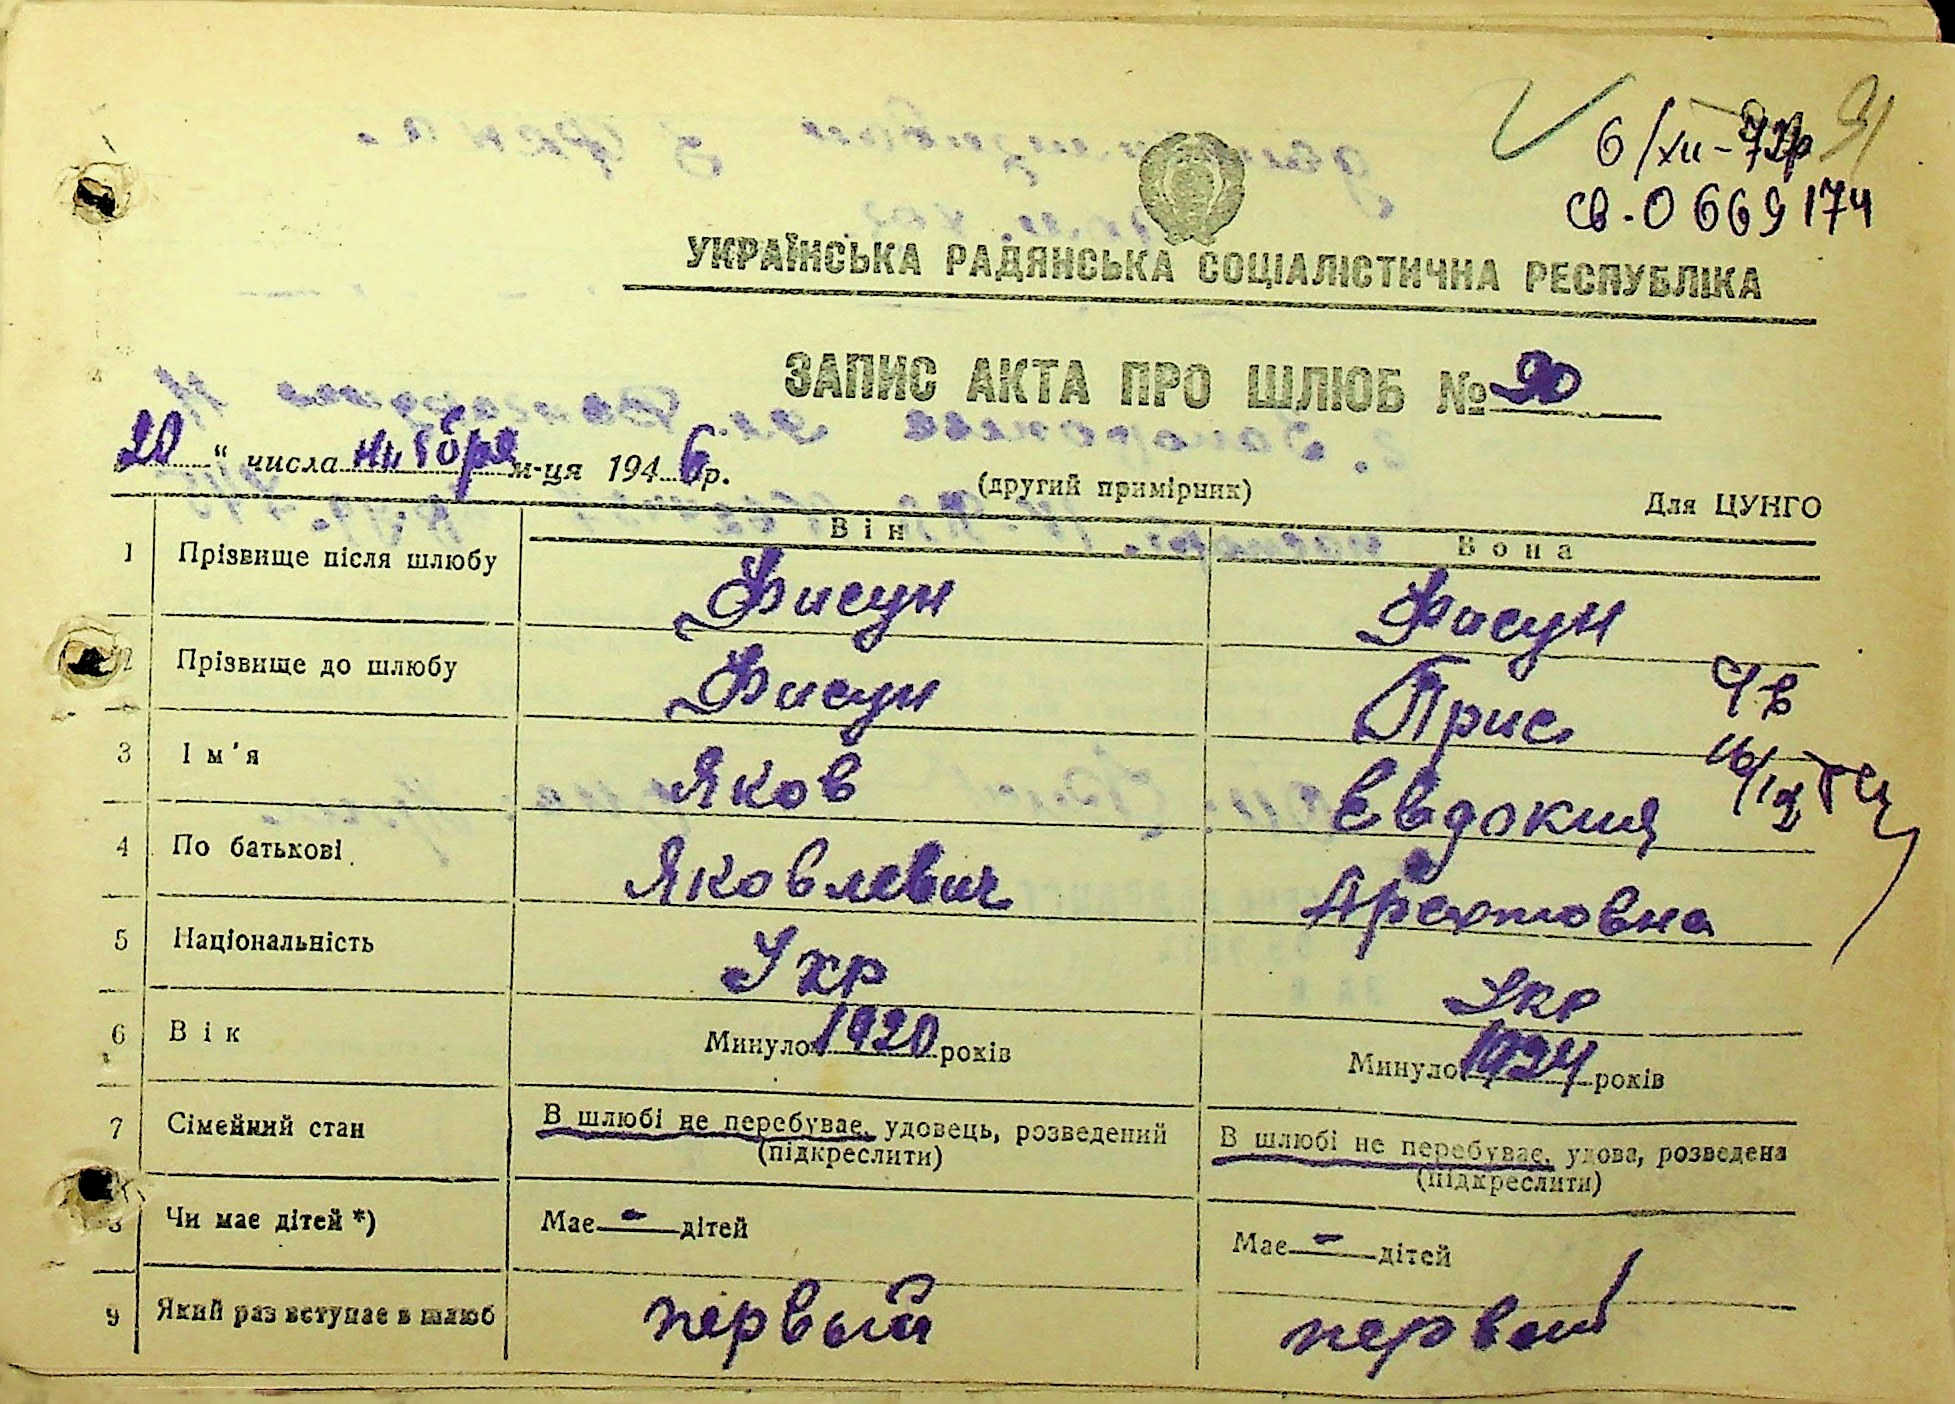 6/XII-72р
св.-0 669174
УКРАЇНСЬКА РАДЯНСЬКА СОЦІАЛІСТИЧНА РЕСПУБЛІКА
ЗАПИС АКТА ПРО ШЛЮБ № 90
20 " числа ноября м-ця 1946 р.
(другий примірник)
Для ЦУНГО
Він Вона
1 Прізвище після шлюбу Фисун Фисун
2 Прізвище до шлюбу Фисун Прис
3 Ім'я Яков Евдокия
4 По батькові Яковлевич Арехтовна
5 Національність Укр Укр
6 Вік Минуло 1920 років Минуло 1924 років
7 Сімейний стан В шлюбі не перебуває, удовець, розведений В шлюбі не перебуває, удова, розведена
(підкреслити) (підкреслити)
8 Чи має дітей *) Має - дітей Має - дітей
9 Який раз вступає в шлюб первый первый